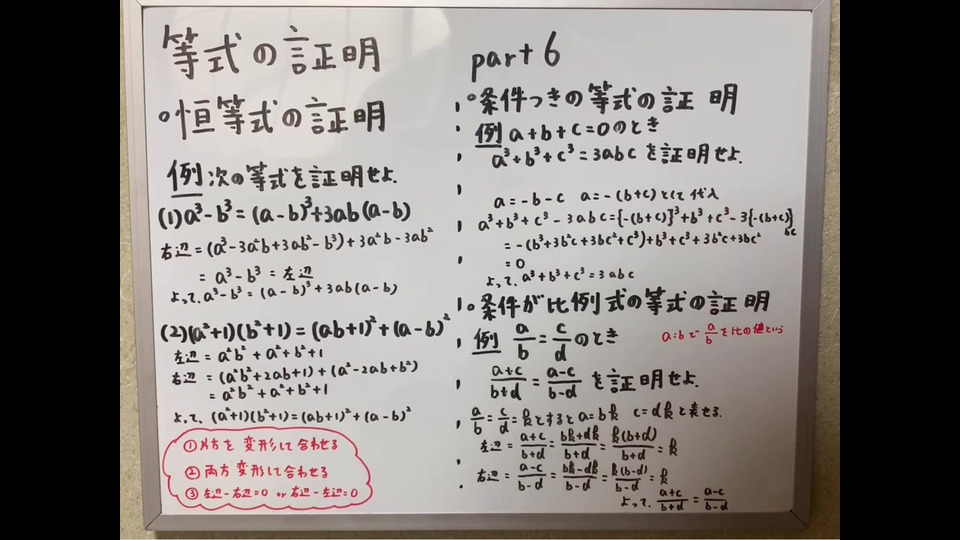 等式の証明
part 6
◦恒等式の証明
例 次の等式を証明せよ.
(1) a³-b³=(a-b)³+3ab(a-b)
右辺=(a³-3a²b+3ab²-b³)+3a²b-3ab²
= a³-b³ = 左辺
よって, a³-b³=(a-b)³+3ab(a-b)
(2) (a²+1)(b²+1)=(ab+1)²+(a-b)²
左辺 = a²b²+a²+b²+1
右辺 = (a²b²+2ab+1)+(a²-2ab+b²)
= a²b²+a²+b²+1
よって, (a²+1)(b²+1)=(ab+1)²+(a-b)²
①片方を変形して合わせる
②両方変形して合わせる
③左辺-右辺=0 or 右辺-左辺=0
◦条件つきの等式の証明
例 a+b+c=0のとき
a³+b³+c³=3abcを証明せよ.
a=-b-c a=-(b+c)として代入
a³+b³+c³-3abc={-(b+c)}³+b³+c³-3{-(b+c)}bc
=-(b³+3b²c+3bc²+c³)+b³+c³+3b²c+3bc²
=0
よって, a³+b³+c³=3abc
◦条件が比例式の等式の証明
例 a/b=c/dのとき
a:bで a/b を比の値という
(a+c)/(b+d)=(a-c)/(b-d) を証明せよ.
a/b=c/d=kとするとa=bk c=dkと表せる.
左辺=(a+c)/(b+d)=(bk+dk)/(b+d)=k(b+d)/(b+d)=k
右辺=(a-c)/(b-d)=(bk-dk)/(b-d)=k(b-d)/(b-d)=k
よって, (a+c)/(b+d)=(a-c)/(b-d)